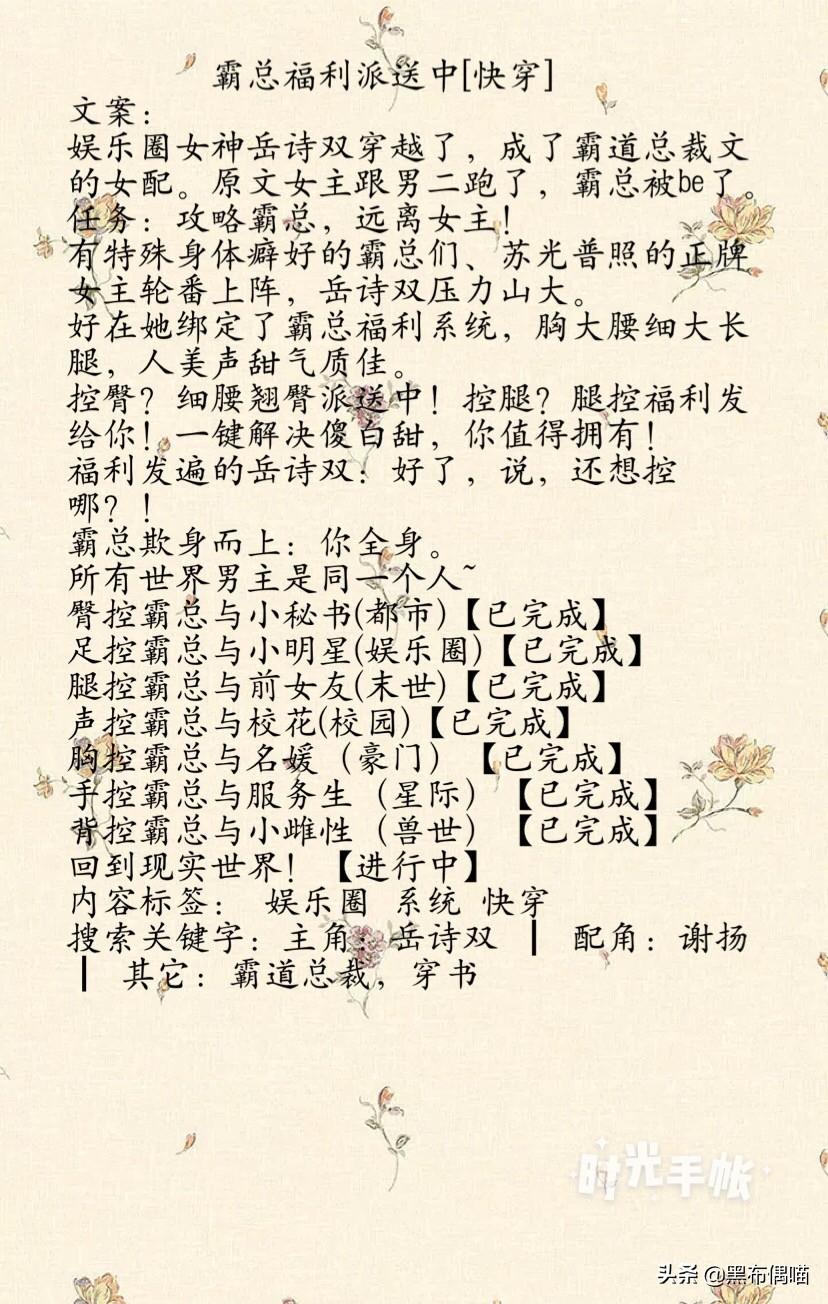 霸总福利派送中[快穿]
文案：
娱乐圈女神岳诗双穿越了，成了霸道总裁文
的女配。原文女主跟男二跑了，霸总被be了。
任务：攻略霸总，远离女主！
有特殊身体癖好的霸总们、苏光普照的正牌
女主轮番上阵，岳诗双压力山大。
好在她绑定了霸总福利系统，胸大腰细大长
腿，人美声甜气质佳。
控臀？细腰翘臀派送中！控腿？腿控福利发
给你！一键解决傻白甜，你值得拥有！
福利发遍的岳诗双：好了，说，还想控
哪？！
霸总欺身而上：你全身。
所有世界男主是同一个人~
臀控霸总与小秘书(都市)【已完成】
足控霸总与小明星(娱乐圈)【已完成】
腿控霸总与前女友(末世)【已完成】
声控霸总与校花(校园)【已完成】
胸控霸总与名媛（豪门）【已完成】
手控霸总与服务生（星际）【已完成】
背控霸总与小雌性（兽世）【已完成】
回到现实世界！【进行中】
内容标签： 娱乐圈 系统 快穿
搜索关键字：主角：岳诗双 ┃ 配角：谢扬
┃ 其它：霸道总裁，穿书
时光手帐
头条 @黑布偶喵